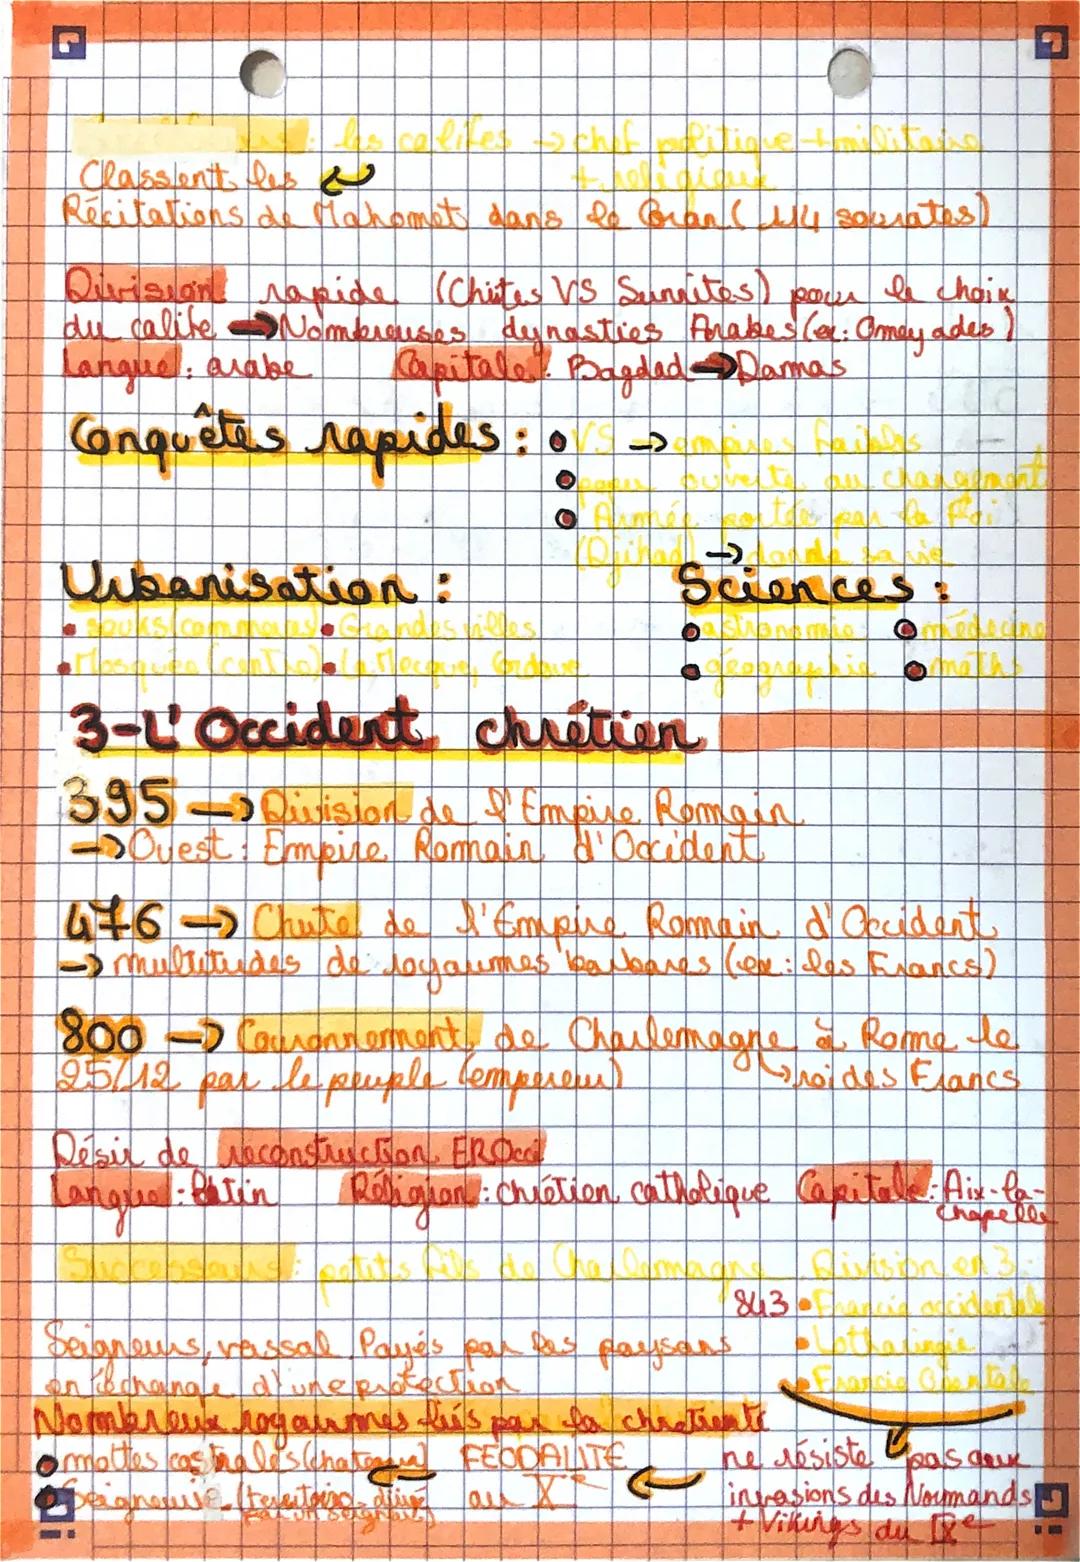 : les califes → chef politique + militaire
+ religieux
Classent les
Récitations de Mahomet dans le Coran ( 114 sourates)
Division rapide (Chiites VS Sunnites) pour le choix
du calife → Nombreuses dynasties Arabes (ex: Omeyades)
Langue : arabe Capitale : Bagdad → Damas
Conquêtes rapides : • VS → empires faibles
• popu ouverte au changement
• Armée portée par la Foi
(Djihad) → donde sa vie
Urbanisation :
• souks (commerces) • Grandes villes
• Mosquée (centre) • La Mecque, Cordoue
Sciences :
• astronomie • médecine
• géographie • maths
3-L'Occident chrétien
395 → Division de l'Empire Romain
→ Ouest : Empire Romain d'Occident
476 → Chute de l'Empire Romain d'Occident
→ multitudes de royaumes barbares (ex : les Francs)
800 → Couronnement de Charlemagne à Rome le
25/12 par le peuple (empereur) ↳ roi des Francs
Désir de reconstruction EROcci
Langue : Latin Réligion : chrétien catholique Capitale : Aix-la-
Chapelle
Successeurs : petits fils de Charlemagne. Division en 3 :
843 • Francie occidentale
• Lotharingie
• Francie Orientale
Seigneurs, vassal. Payés par les paysans
en échange d'une protection
Nombreux royaumes liés par la chrétienté
• mottes castrales (chateaux) ← FEODALITE
• Seigneurie (territoire dirigé par un seigneur) au Xe ←
ne résiste pas aux
invasions des Normands
+ Vikings du IXe